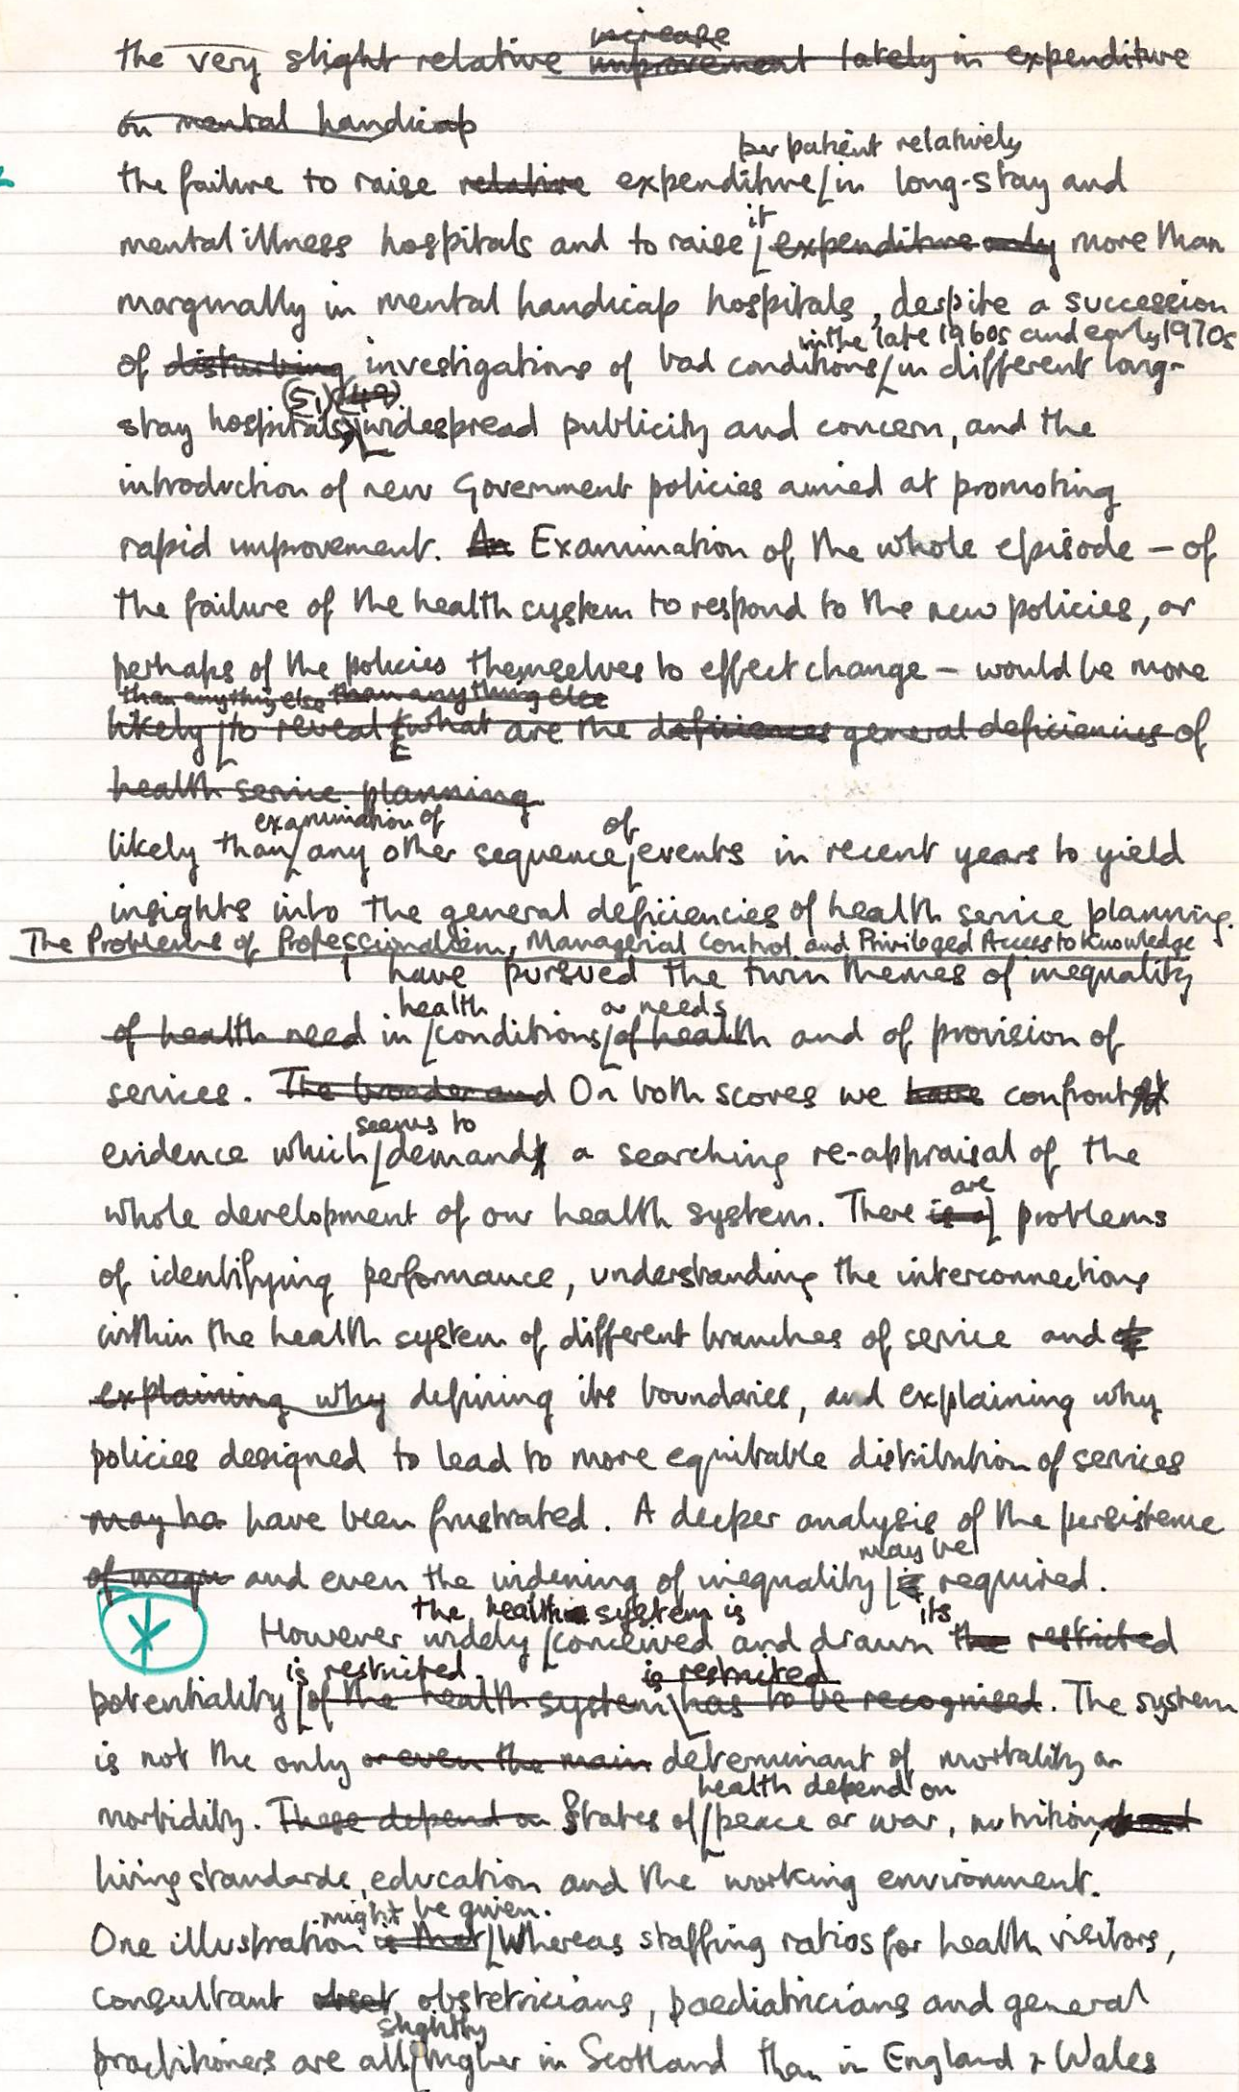 the very slight relative improvement increase lately in expenditure
on mental handicap
per patient relatively
the failure to raise relative expenditure in long-stay and
it
mental illness hospitals and to raise expenditure only more than
marginally in mental handicap hospitals, despite a succession
in the late 1960s and early 1970s
of disturbing investigations of bad conditions in different long-
(51) (49)
stay hospitals, widespread publicity and concern, and the
introduction of new Government policies aimed at promoting
rapid improvement. An Examination of the whole episode – of
the failure of the health system to respond to the new policies, or
perhaps of the policies themselves to effect change – would be more
than anything else than anything else
likely to reveal what are the deficiences general deficiencies of
health service planning
examination of of
likely than any other sequence events in recent years to yield
insights into the general deficiencies of health service planning.
The Problems of Professionalism, Managerial Control and Privileged Access to Knowledge
I have pursued the twin themes of inequality
health or needs
of health need in conditions of health and of provision of
services. The broader and On both scores we have confront
seems to
evidence which demand a searching re-appraisal of the
are
whole development of our health system. There is a problems
of identifying performance, understanding the interconnections
within the health system of different branches of service and
explaining why defining its boundaries, and explaining why
policies designed to lead to more equitable distribution of services
may ha have been frustrated. A deeper analysis of the persistence
may be
of inequ and even the widening of inequality is required.
the health system is its
However widely conceived and drawn the restricted
is restricted. is restricted
potentiality of the health system has to be recognised. The system
is not the only or even the main determinant of mortality or
health depend on
morbidity. These depend on States of peace or war, nutrition, and
living standards, education and the working environment.
might be given.
One illustration is that Whereas staffing ratios for health visitors,
consultant obset obstetricians, paediatricians and general
slightly
practitioners are all higher in Scotland than in England & Wales